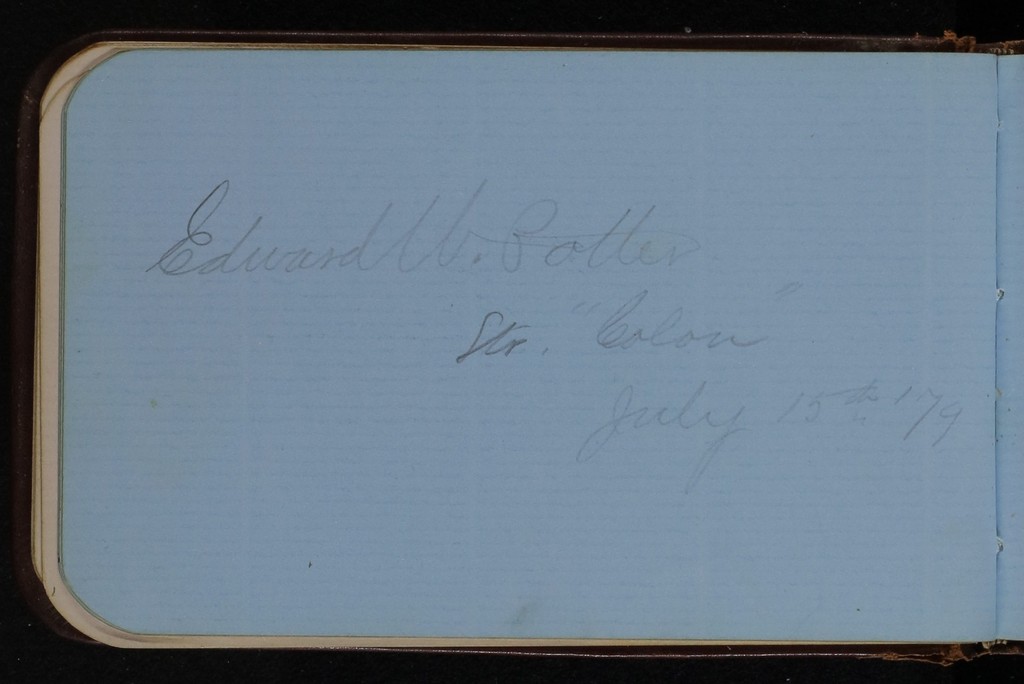 Edward W. Potter
Str. "Colon"
July 15th '79